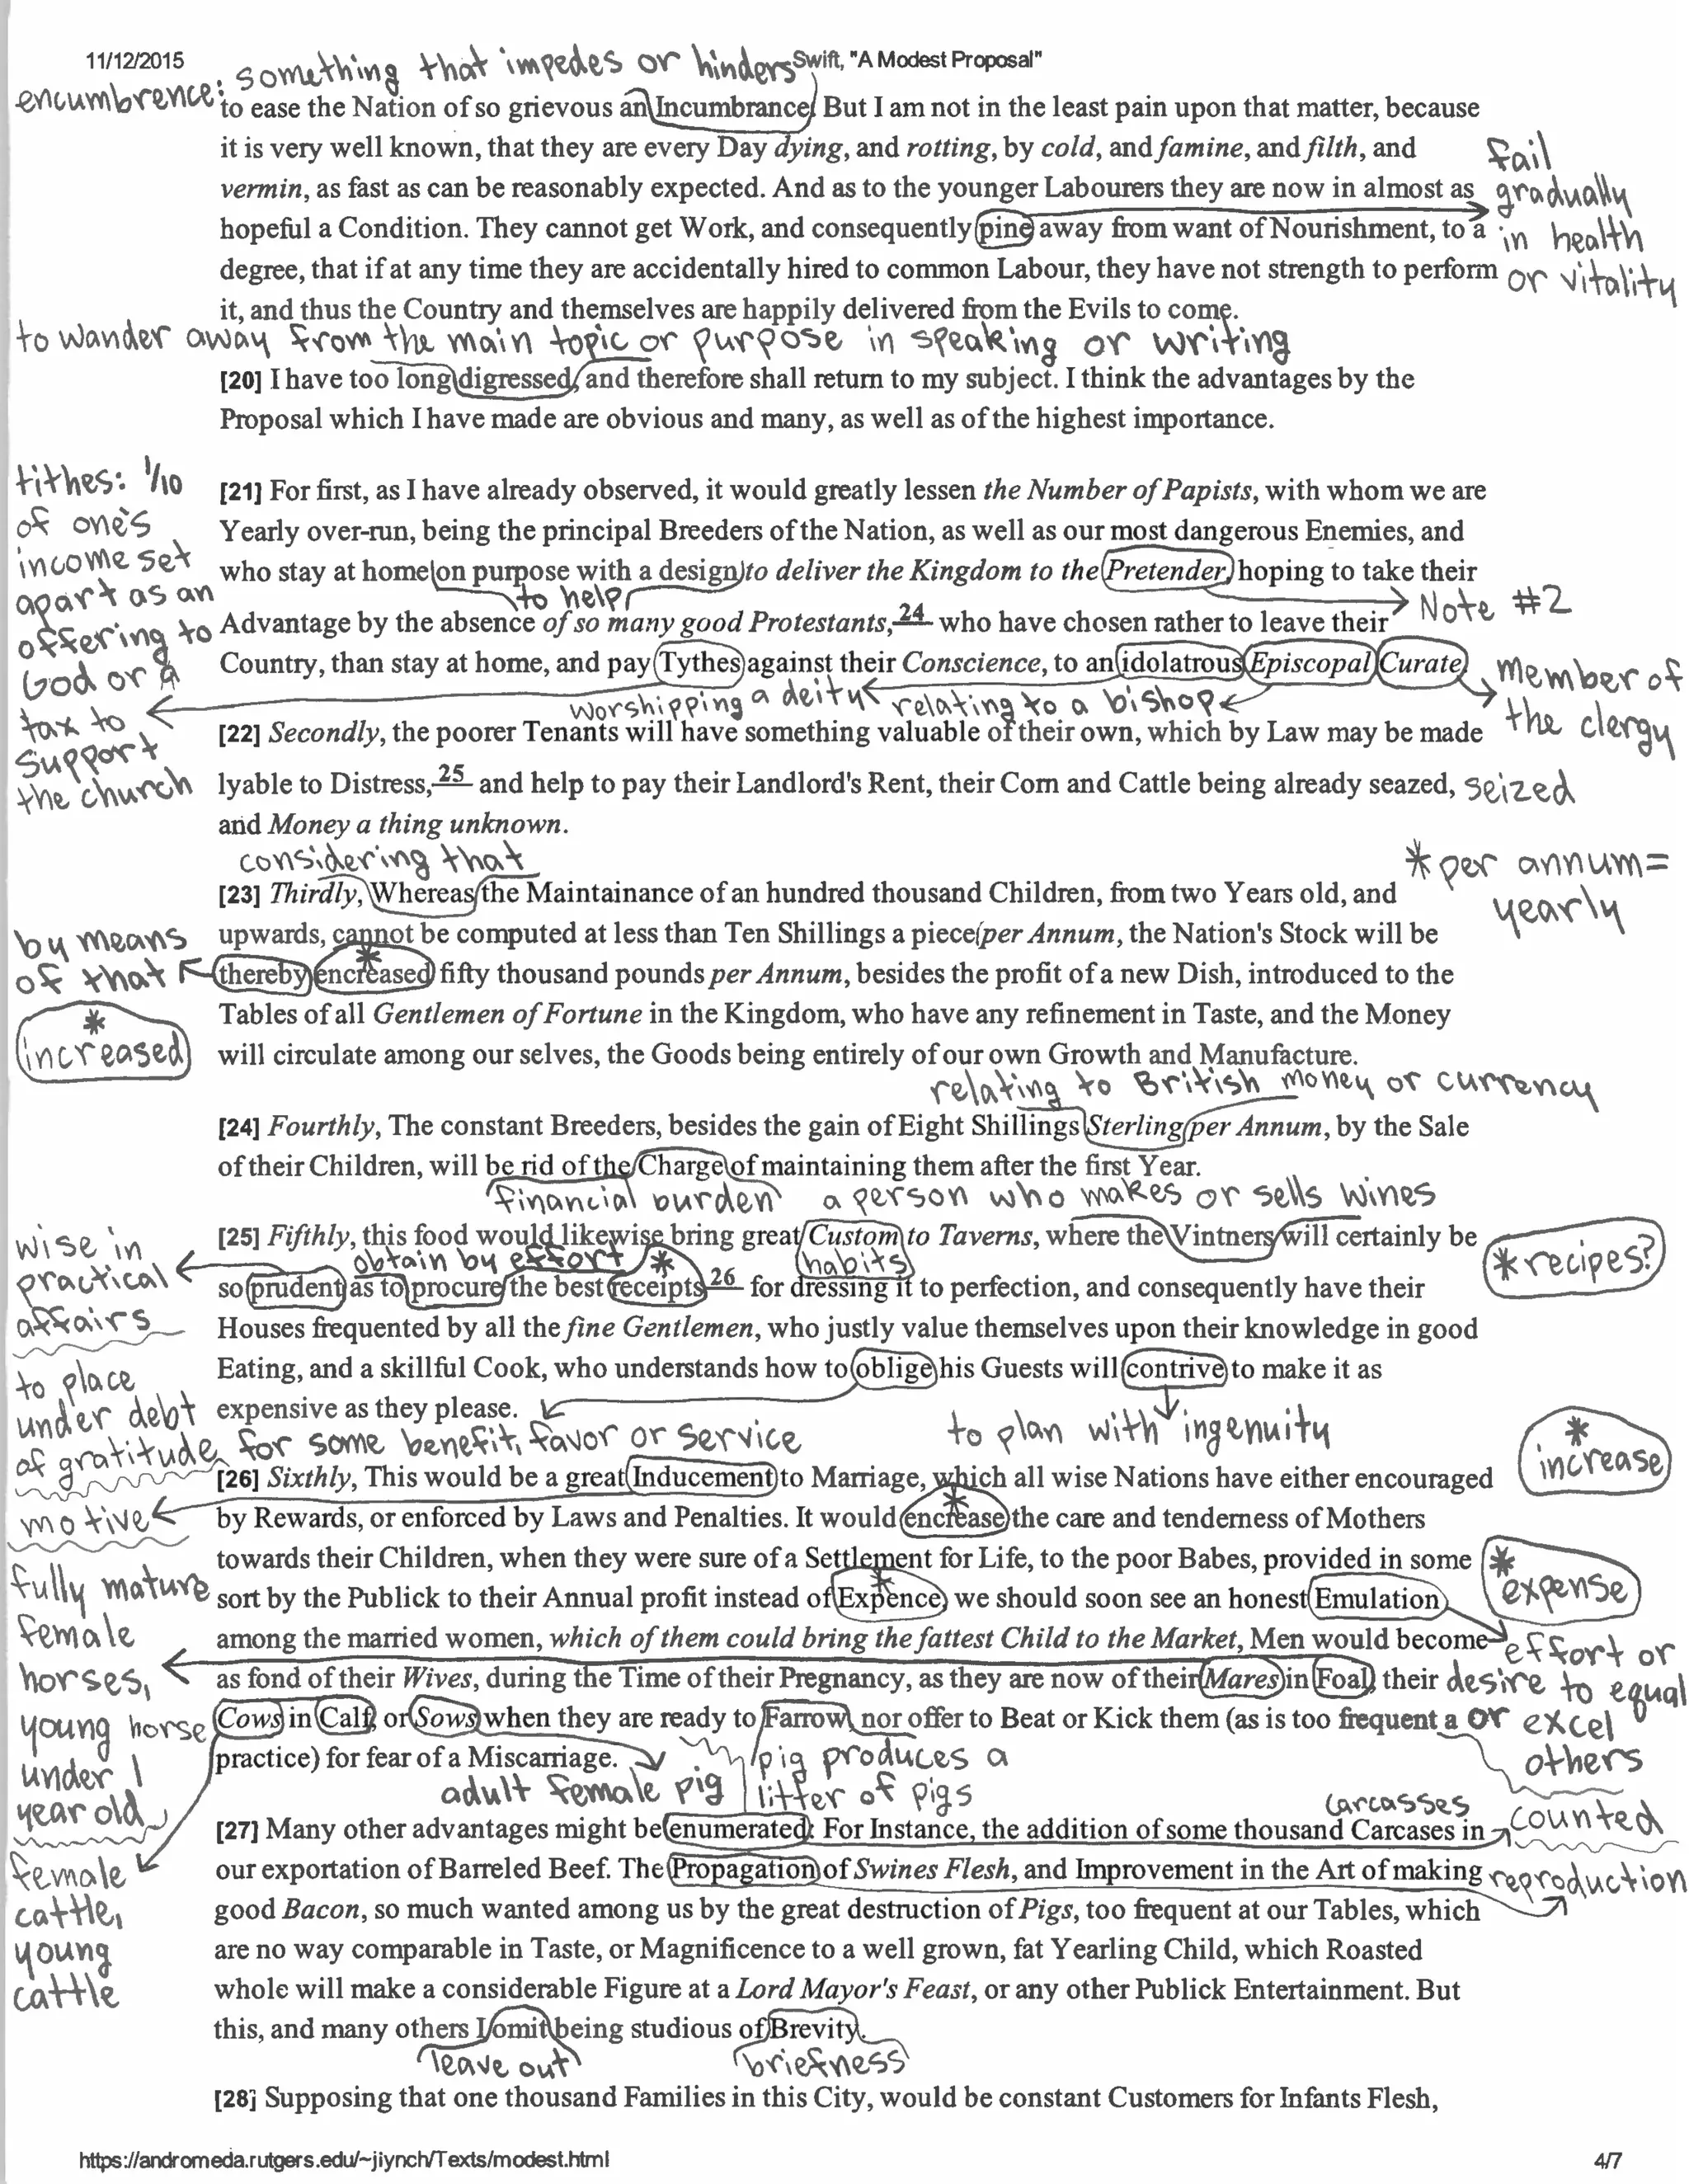 11/12/2015 Swift, "A Modest Proposal"
encumbrence: something that impedes or hinders
to ease the Nation of so grievous an Incumbrance. But I am not in the least pain upon that matter, because
it is very well known, that they are every Day dying, and rotting, by cold, and famine, and filth, and
vermin, as fast as can be reasonably expected. And as to the younger Labourers they are now in almost as
hopeful a Condition. They cannot get Work, and consequently pine away from want of Nourishment, to a
degree, that if at any time they are accidentally hired to common Labour, they have not strength to perform
it, and thus the Country and themselves are happily delivered from the Evils to come.
fail
gradually
in health
or vitality
to wander away from the main topic or purpose in speaking or writing
[20] I have too long digressed, and therefore shall return to my subject. I think the advantages by the
Proposal which I have made are obvious and many, as well as of the highest importance.
tithes: 1/10
of one's
income set
apart as an
offering to
God or a
tax to
support
the church
[21] For first, as I have already observed, it would greatly lessen the Number of Papists, with whom we are
Yearly over-run, being the principal Breeders of the Nation, as well as our most dangerous Enemies, and
who stay at home on purpose with a design to deliver the Kingdom to the Pretender, hoping to take their
to help
Note #2
Advantage by the absence of so many good Protestants,24 who have chosen rather to leave their
Country, than stay at home, and pay Tythes against their Conscience, to an idolatrous Episcopal Curate.
worshipping a deity
relating to a bishop
member of
the clergy
[22] Secondly, the poorer Tenants will have something valuable of their own, which by Law may be made
lyable to Distress,25 and help to pay their Landlord's Rent, their Corn and Cattle being already seazed,
seized
and Money a thing unknown.
considering that
* per annum=
yearly
[23] Thirdly, Whereas the Maintainance of an hundred thousand Children, from two Years old, and
upwards, cannot be computed at less than Ten Shillings a piece per Annum, the Nation's Stock will be
thereby encreased fifty thousand pounds per Annum, besides the profit of a new Dish, introduced to the
Tables of all Gentlemen of Fortune in the Kingdom, who have any refinement in Taste, and the Money
will circulate among our selves, the Goods being entirely of our own Growth and Manufacture.
by means
of that
*
increased
*
relating to British money or currency
[24] Fourthly, The constant Breeders, besides the gain of Eight Shillings Sterling per Annum, by the Sale
of their Children, will be rid of the Charge of maintaining them after the first Year.
financial burden
a person who makes or sells wines
[25] Fifthly, this food would likewise bring great Custom to Taverns, where the Vintners will certainly be
obtain by effort *
habits
*recipes?
so prudent as to procure the best receipts26 for dressing it to perfection, and consequently have their
Houses frequented by all the fine Gentlemen, who justly value themselves upon their knowledge in good
Eating, and a skillful Cook, who understands how to oblige his Guests will contrive to make it as
expensive as they please.
wise in
practical
affairs
to place
under debt
of gratitude for some benefit, favor or service
to plan with ingenuity
*
increase
[26] Sixthly, This would be a great Inducement to Marriage, which all wise Nations have either encouraged
motive
by Rewards, or enforced by Laws and Penalties. It would encrease the care and tenderness of Mothers
*
towards their Children, when they were sure of a Settlement for Life, to the poor Babes, provided in some
sort by the Publick to their Annual profit instead of Expence, we should soon see an honest Emulation
*
*
expense
among the married women, which of them could bring the fattest Child to the Market, Men would become
as fond of their Wives, during the Time of their Pregnancy, as they are now of their Mares in Foal, their
Cows in Calf, or Sows when they are ready to Farrow, nor offer to Beat or Kick them (as is too frequent a
practice) for fear of a Miscarriage.
effort or
desire to equal
or excel
others
fully mature
female
horses,
young horse
under 1
year old
female
cattle,
young
cattle
adult female pig
pig produces a
litter of pigs
carcasses
counted
[27] Many other advantages might be enumerated: For Instance, the addition of some thousand Carcases in
our exportation of Barreled Beef. The Propagation of Swines Flesh, and Improvement in the Art of making
reproduction
good Bacon, so much wanted among us by the great destruction of Pigs, too frequent at our Tables, which
are no way comparable in Taste, or Magnificence to a well grown, fat Yearling Child, which Roasted
whole will make a considerable Figure at a Lord Mayor's Feast, or any other Publick Entertainment. But
this, and many others I omit being studious of Brevity.
leave out
briefness
[28] Supposing that one thousand Families in this City, would be constant Customers for Infants Flesh,
https://andromeda.rutgers.edu/~jlynch/Texts/modest.html 4/7